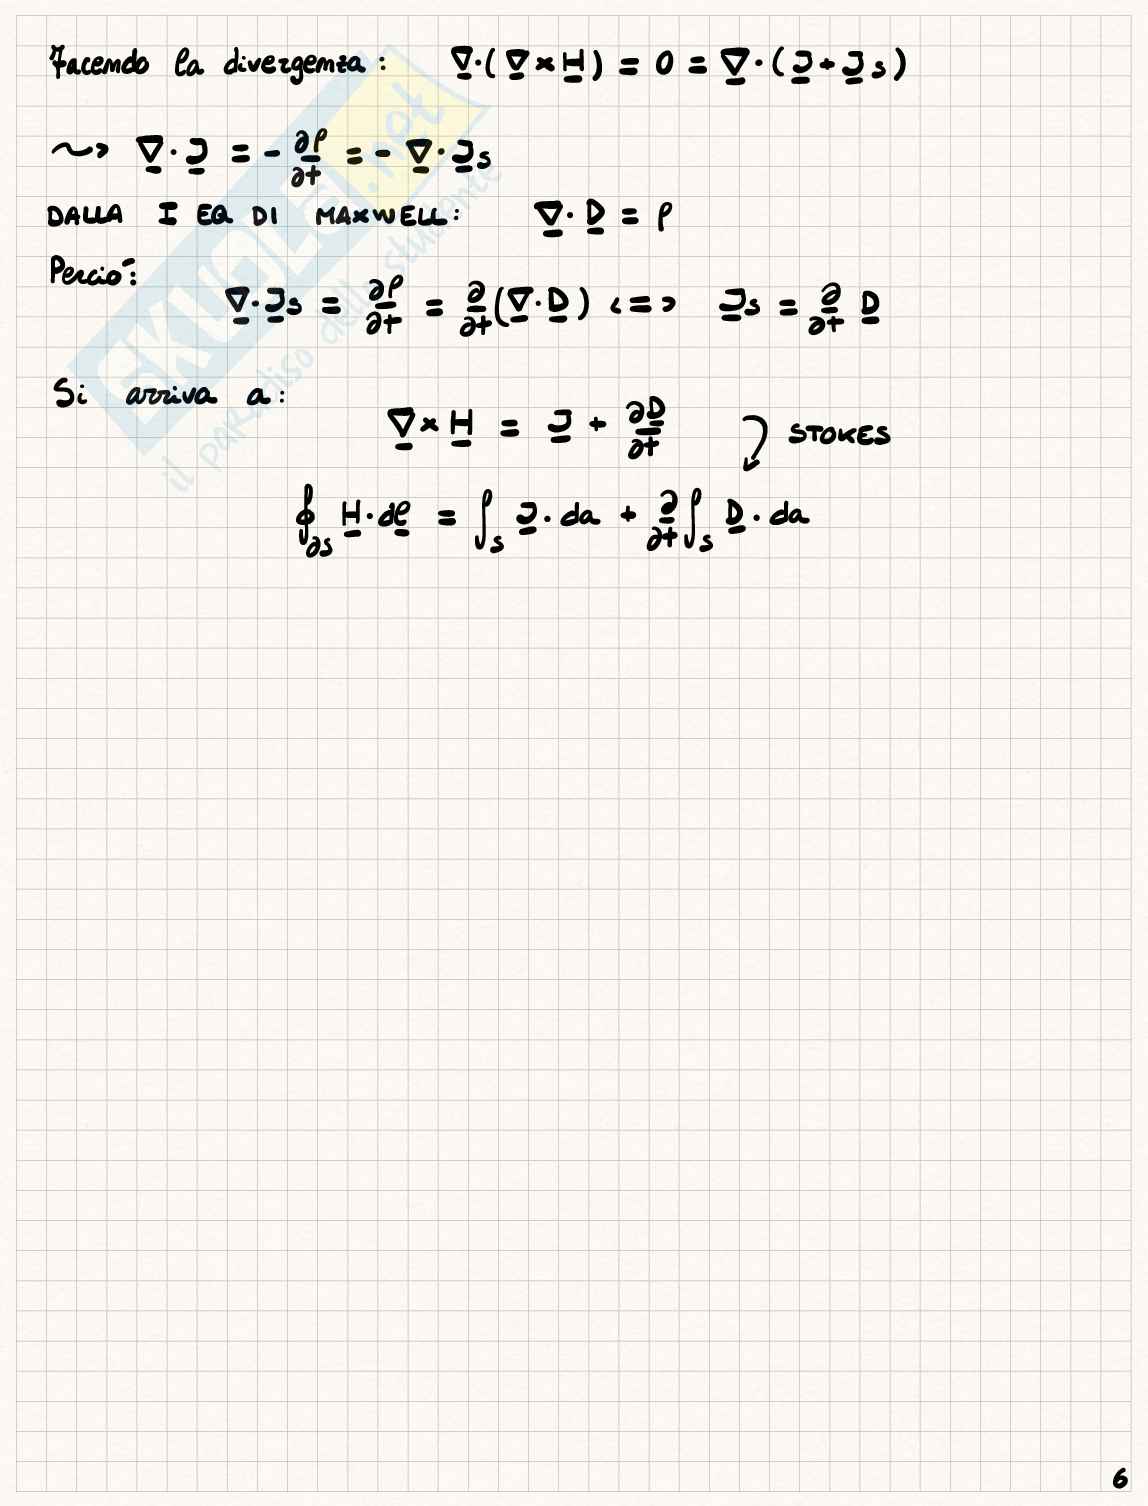 Facendo la divergenza: ∇·(∇×H) = 0 = ∇·(J+Js)
~> ∇·J = -∂ρ/∂t = -∇·Js
DALLA I EQ DI MAXWELL: ∇·D = ρ
Perciò:
∇·Js = ∂ρ/∂t = ∂/∂t(∇·D) <=> Js = ∂/∂t D
Si arriva a:
∇×H = J + ∂D/∂t
STOKES
∮∂S H·dl = ∫S J·da + ∂/∂t ∫S D·da
SKUOLA.net
il paradiso dello studente
6